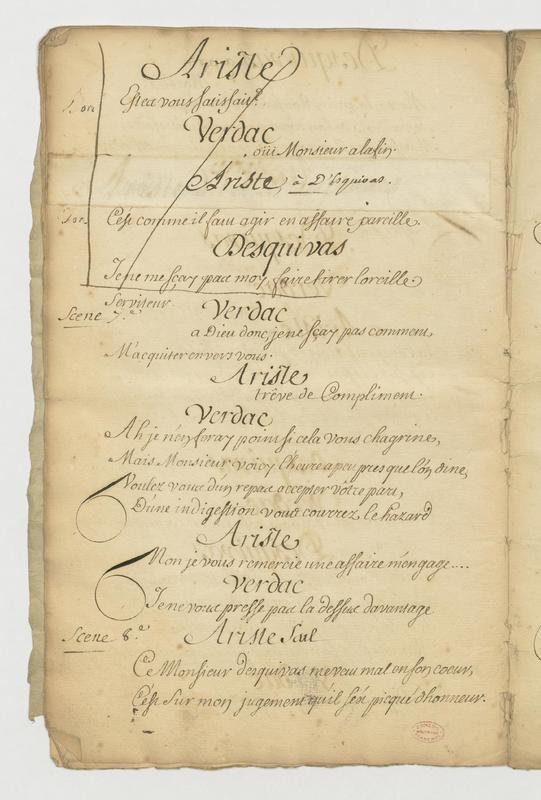 Ariste
Estes vous satisfait?
bon
Verdac
oüi Monsieur a la fin.
Ariste, à D'Esquivas.
bon
C'est comme il faut agir en affaire pareille.
Desquivas
Je ne me sçay pas moy, faire tirer l'oreille
Serviteur
Scene 7.e
Verdac
a Dieu donc, je ne sçay pas comment,
M'acquiter envers vous.
Ariste
trêve de Compliment.
Verdac
Ah je n'en feray point si cela vous chagrine,
Mais Monsieur voicy l'heure a peu pres que l'on dine,
Voulez vous d'un repas accepter vôtre part,
D'une indigestion vous courrez le hazard
Ariste
Non je vous remercie une affaire m'engage....
Verdac
Je ne vous presse pas la dessus davantage
Scene 8.e
Ariste Seul
Ce Monsieur desquivas me veut mal en son coeur,
C'est sur mon jugement qu'il s'est picqué d'honneur.